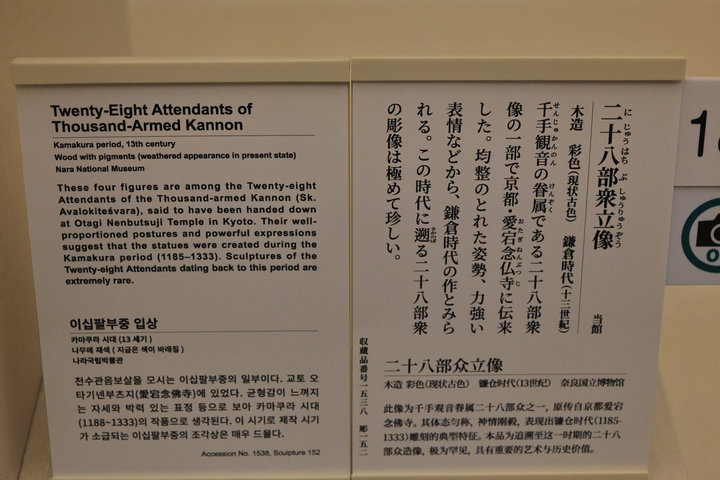 Twenty-Eight Attendants of
Thousand-Armed Kannon
Kamakura period, 13th century
Wood with pigments (weathered appearance in present state)
Nara National Museum
These four figures are among the Twenty-eight
Attendants of the Thousand-armed Kannon (Sk.
Avalokiteśvara), said to have been handed down
at Otagi Nenbutsuji Temple in Kyoto. Their well-
proportioned postures and powerful expressions
suggest that the statues were created during the
Kamakura period (1185–1333). Sculptures of the
Twenty-eight Attendants dating back to this period are
extremely rare.
이십팔부중 입상
카마쿠라 시대 (13 세기)
나무에 채색 ( 지금은 색이 바래짐 )
나라국립박물관
천수관음보살을 모시는 이십팔부중의 일부이다. 교토 오
타기넨부츠지(愛宕念佛寺)에 있었다. 균형감이 느껴지
는 자세와 박력 있는 표정 등으로 보아 카마쿠라 시대
(1188~1333)의 작품으로 생각된다. 이 시기로 제작 시기
가 소급되는 이십팔부중의 조각상은 매우 드물다.
Accession No. 1538, Sculpture 152
二十八部衆立像
にじゅうはちぶしゅうりゅうぞう
木造 彩色(現状古色) 鎌倉時代(十三世紀)
当館
千手観音の眷属である二十八部衆
せんじゅかんのん けんぞく
像の一部で京都・愛宕念仏寺に伝来
おたぎねんぶつじ
した。均整のとれた姿勢、力強い
表情などから、鎌倉時代の作とみら
れる。この時代に遡る二十八部衆
さかのぼ
の彫像は極めて珍しい。
収蔵品番号一五三八 彫一五二
二十八部众立像
木造 彩色(现状古色) 镰仓时代(13世纪) 奈良国立博物馆
此像为千手观音眷属二十八部众之一，原传自京都爱宕
念佛寺。其体态匀称，神情刚毅，表现出镰仓时代(1185-
1333)雕刻的典型特征。本品为追溯至这一时期的二十八
部众造像，极为罕见，具有重要的艺术与历史价值。